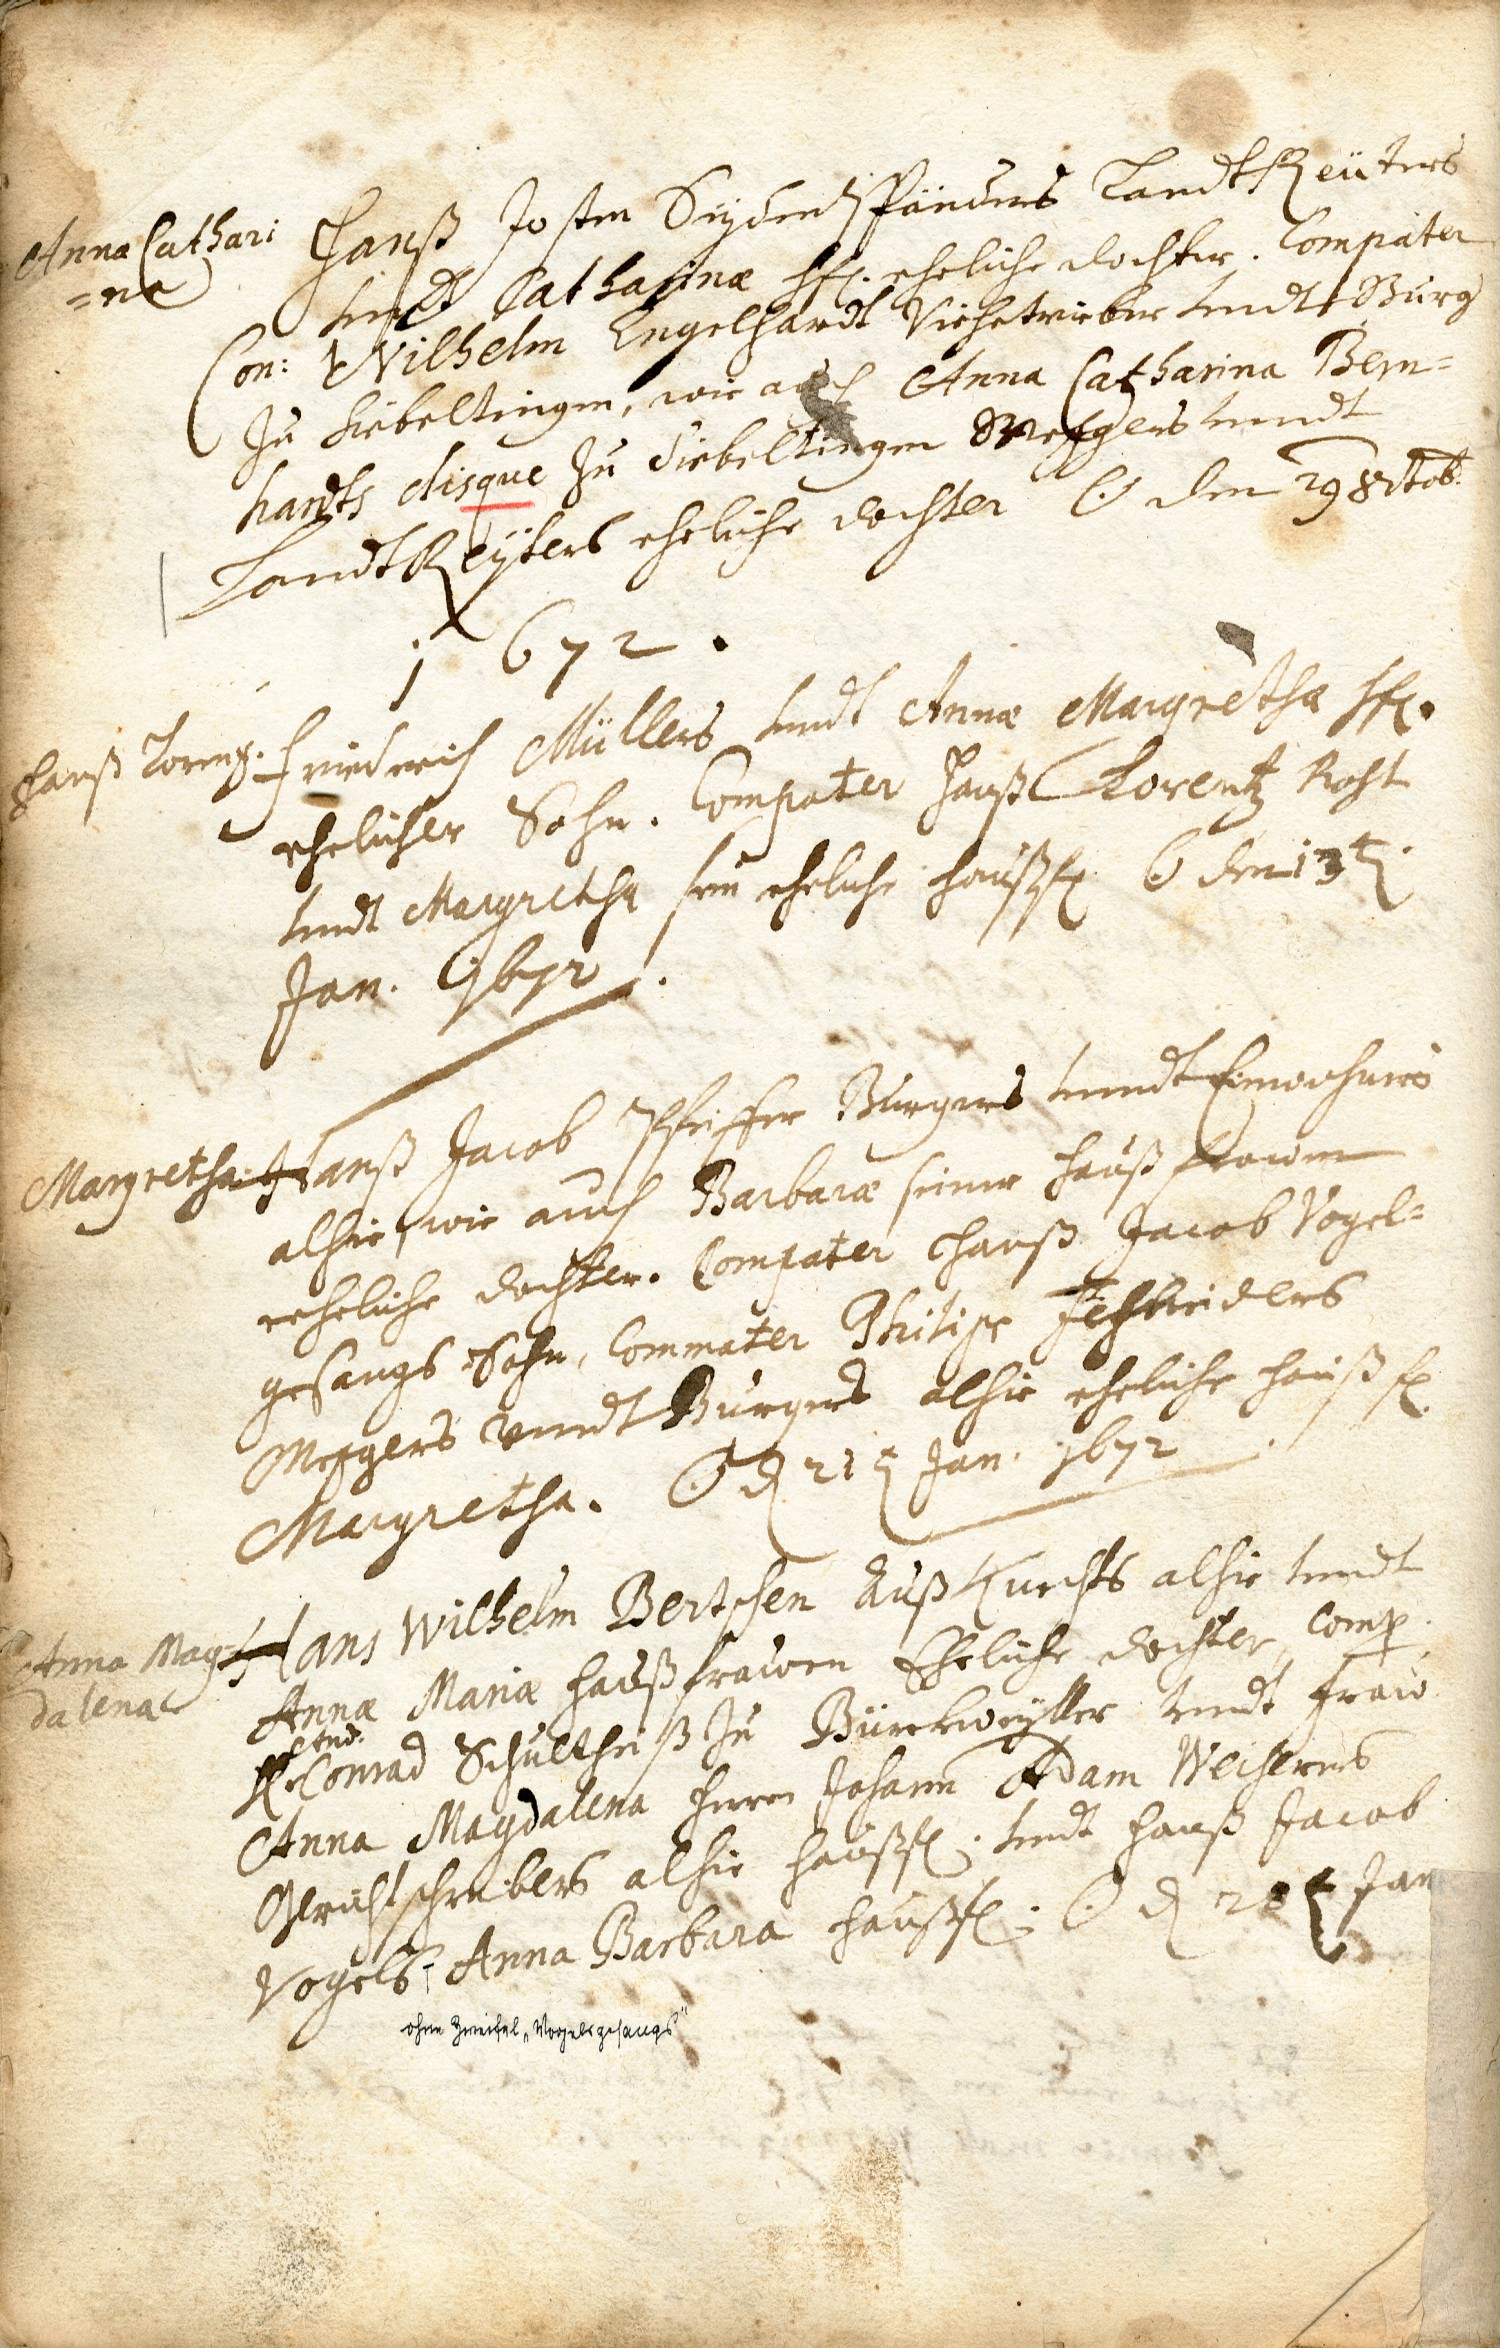 Anna Cathari
=na
Hanß Josten Seydenspänders LandtReüters
undt Catharinæ hf. eheliche dochter. Compater
Con: Wilhelm Engelhardt Viehetrieber undt Burg
zu Siebeltingen, wie auch Anna Catharina Bern=
hardts disque zu Siebeltingen Metzgers undt
LandtReyters eheliche dochter ⊙ den 29 8dtob.
1672.
Hanß Lorentz.
Friederich Müllers undt Annæ Margretha hf.
ehelicher Sohn. Compater Hanß Lorentz Roht
undt Margretha sein eheliche haußf ⊙ den 13t
Jan. 1672.
Margretha
Hanß Jacob Pfeiffer Burgers undt Einwohners
alhie, wie auch Barbaræ seiner haußfrawen
eheliche dochter. Compater Hanß Jacob Vogel=
gesangs Sohn, Commater Philips
Metzgers vundt Burgers alhie eheliche haußf
Margretha. ⊙ d 21t Jan. 1672.
Anna Mag=
dalena
Hans Wilhelm Bertschen Außknechts alhie undt
Annæ Mariæ haußfrawen Eheliche dochter, Comp.
Conrad Schultheiß zu Bürckweyller undt fraw
Anna Magdalena Herrn Johann Adam Weiherers
Gerichtschreibers alhie haußf. undt Hanß Jacob
Vogels: Anna Barbara haußf: ⊙ d 28t Jan
ohne Zweifel „Vogelgesangs"